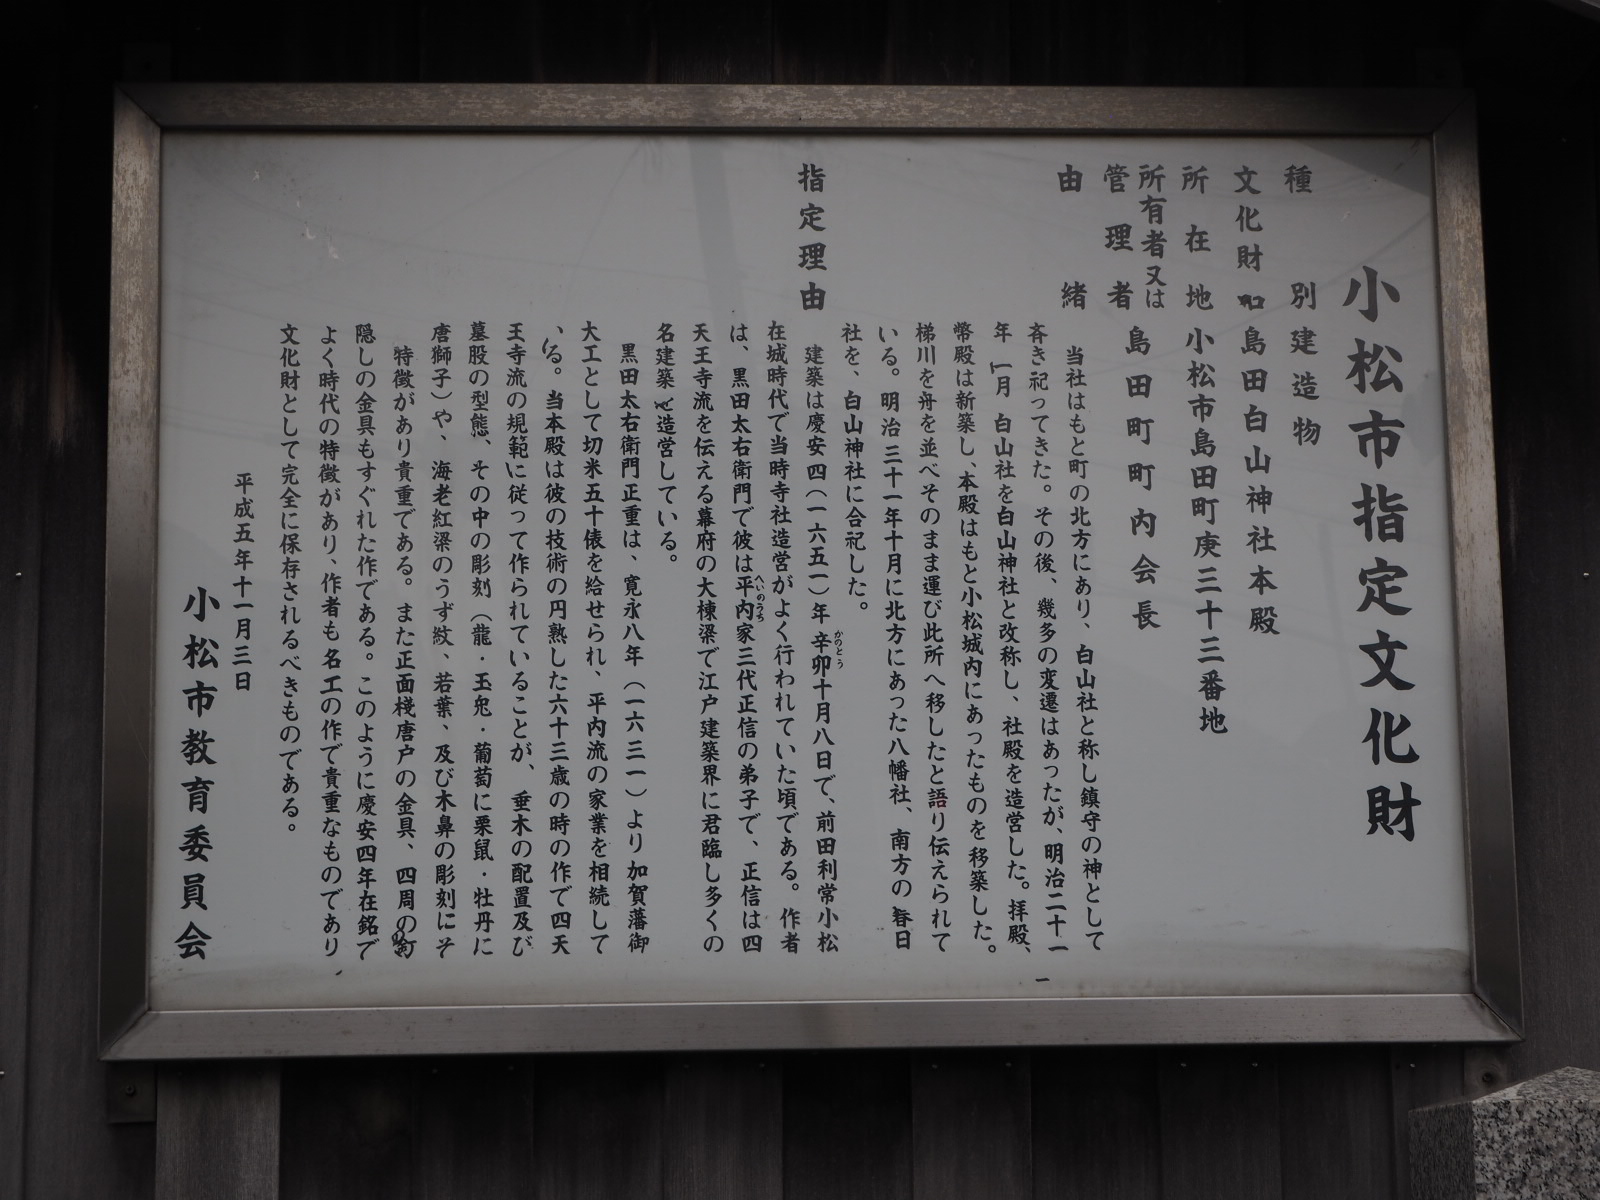 小松市指定文化財
種別 建造物
文化財 島田白山神社本殿
所在地 小松市島田町庚三十三番地
所有者又は
管理者 島田町町内会長
由緒 当社はもと町の北方にあり、白山社と称し鎮守の神として
斉き祀ってきた。その後、幾多の変遷はあったが、明治二十一
年 月 白山社を白山神社と改称し、社殿を造営した。拝殿、
幣殿は新築し、本殿はもと小松城内にあったものを移築した。
梯川を舟を並べそのまま運び此所へ移したと語り伝えられて
いる。明治三十一年十月に北方にあった八幡社、南方の春日
社を、白山神社に合祀した。
指定理由 建築は慶安四(一六五一)年辛卯十月八日で、前田利常小松
かのとう
在城時代で当時寺社造営がよく行われていた頃である。作者
は、黒田太右衛門で彼は平内家三代正信の弟子で、正信は四
へいのうち
天王寺流を伝える幕府の大棟梁で江戸建築界に君臨し多くの
名建築を造営している。
黒田太右衛門正重は、寛永八年(一六三一)より加賀藩御
大工として切米五十俵を給せられ、平内流の家業を相続して
いる。当本殿は彼の技術の円熟した六十三歳の時の作で四天
王寺流の規範に従って作られていることが、垂木の配置及び
墓股の型態、その中の彫刻(龍・玉兎・葡萄に栗鼠・牡丹に
唐獅子)や、海老紅梁のうず紋、若葉、及び木鼻の彫刻にそ
特徴があり貴重である。また正面棧唐戸の金具、四周の釘
隠しの金具もすぐれた作である。このように慶安四年在銘で
よく時代の特徴があり、作者も名工の作で貴重なものであり、
文化財として完全に保存されるべきものである。
平成五年十一月三日
小松市教育委員会